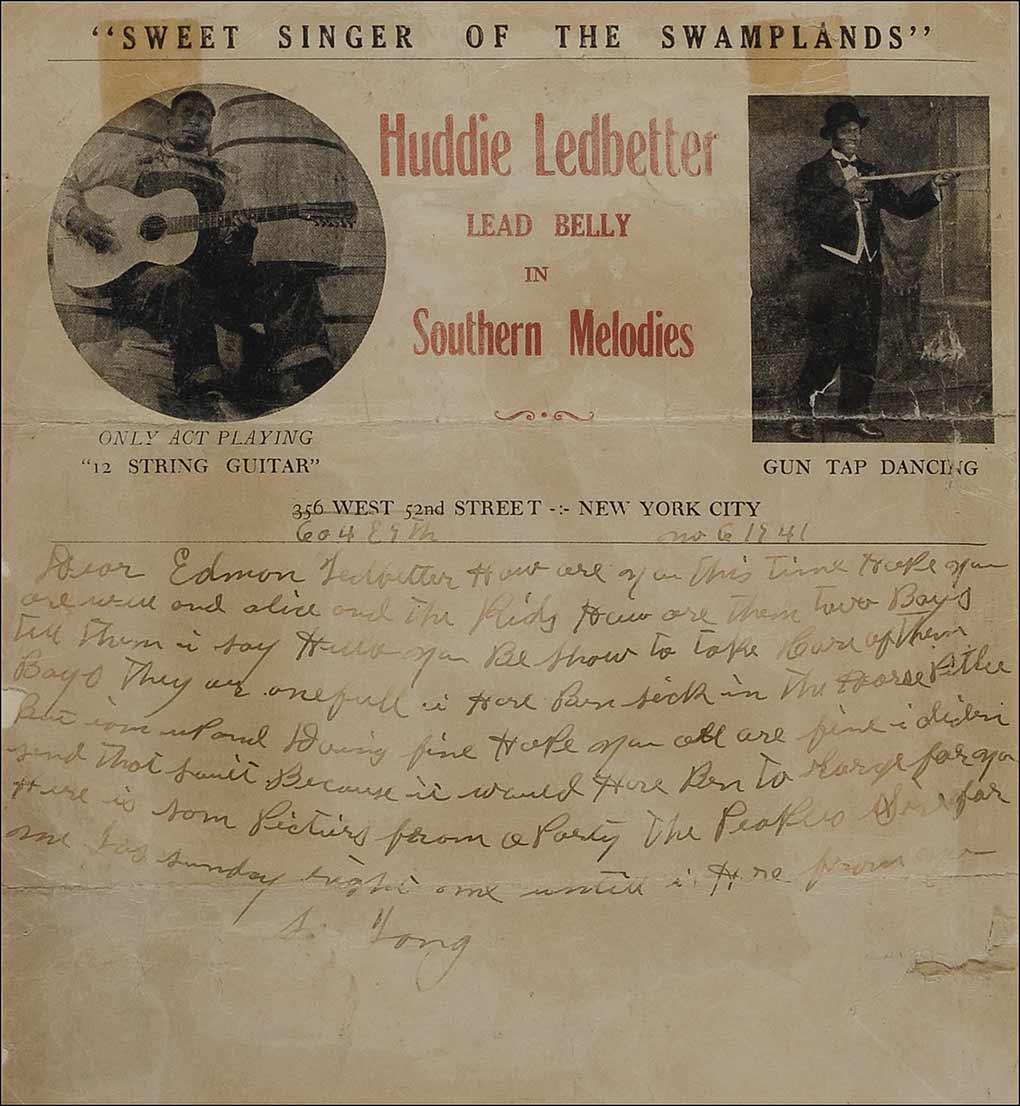 “SWEET SINGER OF THE SWAMPLANDS”
Huddie Ledbetter
LEAD BELLY
IN
Southern Melodies
ONLY ACT PLAYING
“12 STRING GUITAR”
GUN TAP DANCING
356 WEST 52nd STREET -:- NEW YORK CITY
604 E 9th no 6 1941
Dear Edmon Ledbetter How are you this time Hope you
are well and alice and the Kids How are them towo Boys
till them i say Hello you Be show to take Kare of them
Boys They ar onefull i Have Ben sick in the Horse Pitle
But iam up and Doing fine Hope you all are fine i diden
send that suit Because it would Have Ben to large for you
Here is som Picturs from a Party the Peoples for
me las sunday right me untill i Here from you
So Long